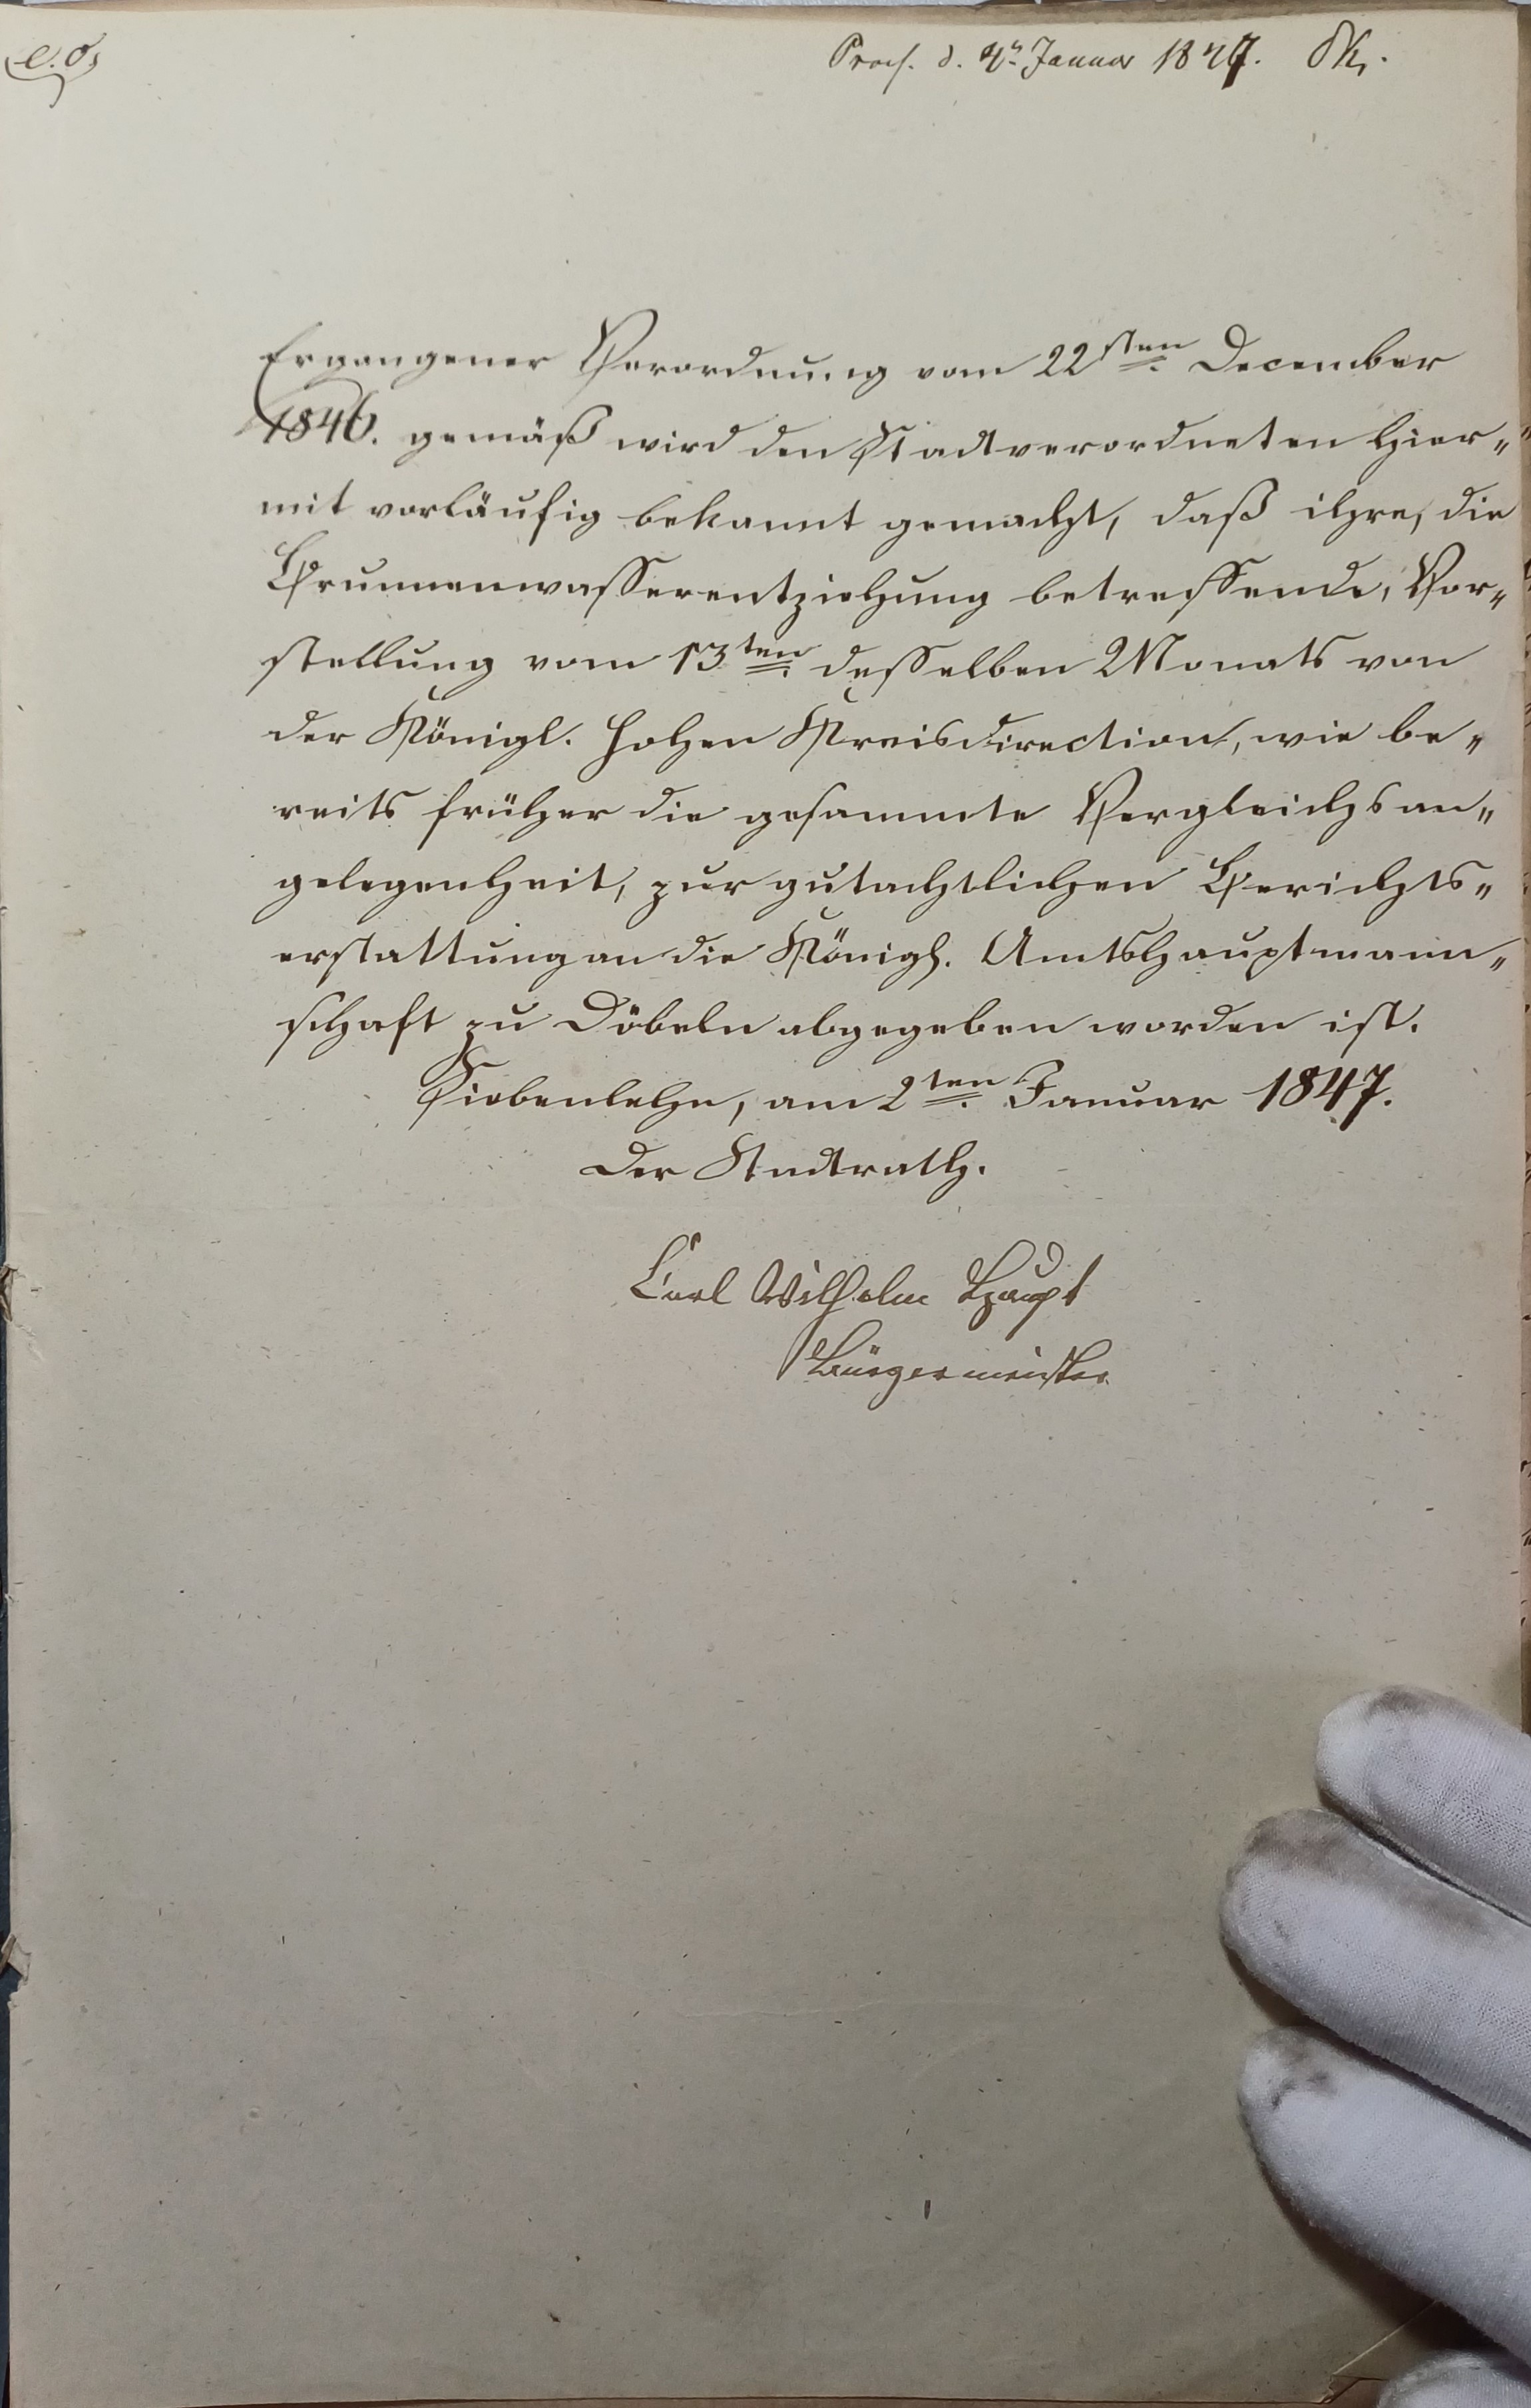 e.o.
Praes. d. 4n Januar 1847.
Ergangener Verordnung vom 22sten December
1846. gemäß wird den Stadtverordneten hier„
mit vorläufig bekannt gemacht, daß ihre, die
Brunnenwasserentziehung betreffende, Vor„
stellung vom 13ten desselben Monats von
der Königl. Hohen Kreisdirection, wie be„
reits früher die gesammte Vergleichsan„
gelegenheit, zur gutachtlichen Berichts„
erstattung an die Königl. Amtshauptmann„
schaft zu Döbeln abgegeben worden ist.
Siebenlehn, am 2ten Januar 1847.
Der Stadtrath.
Carl Wilhelm Haupt
Bürgermeister